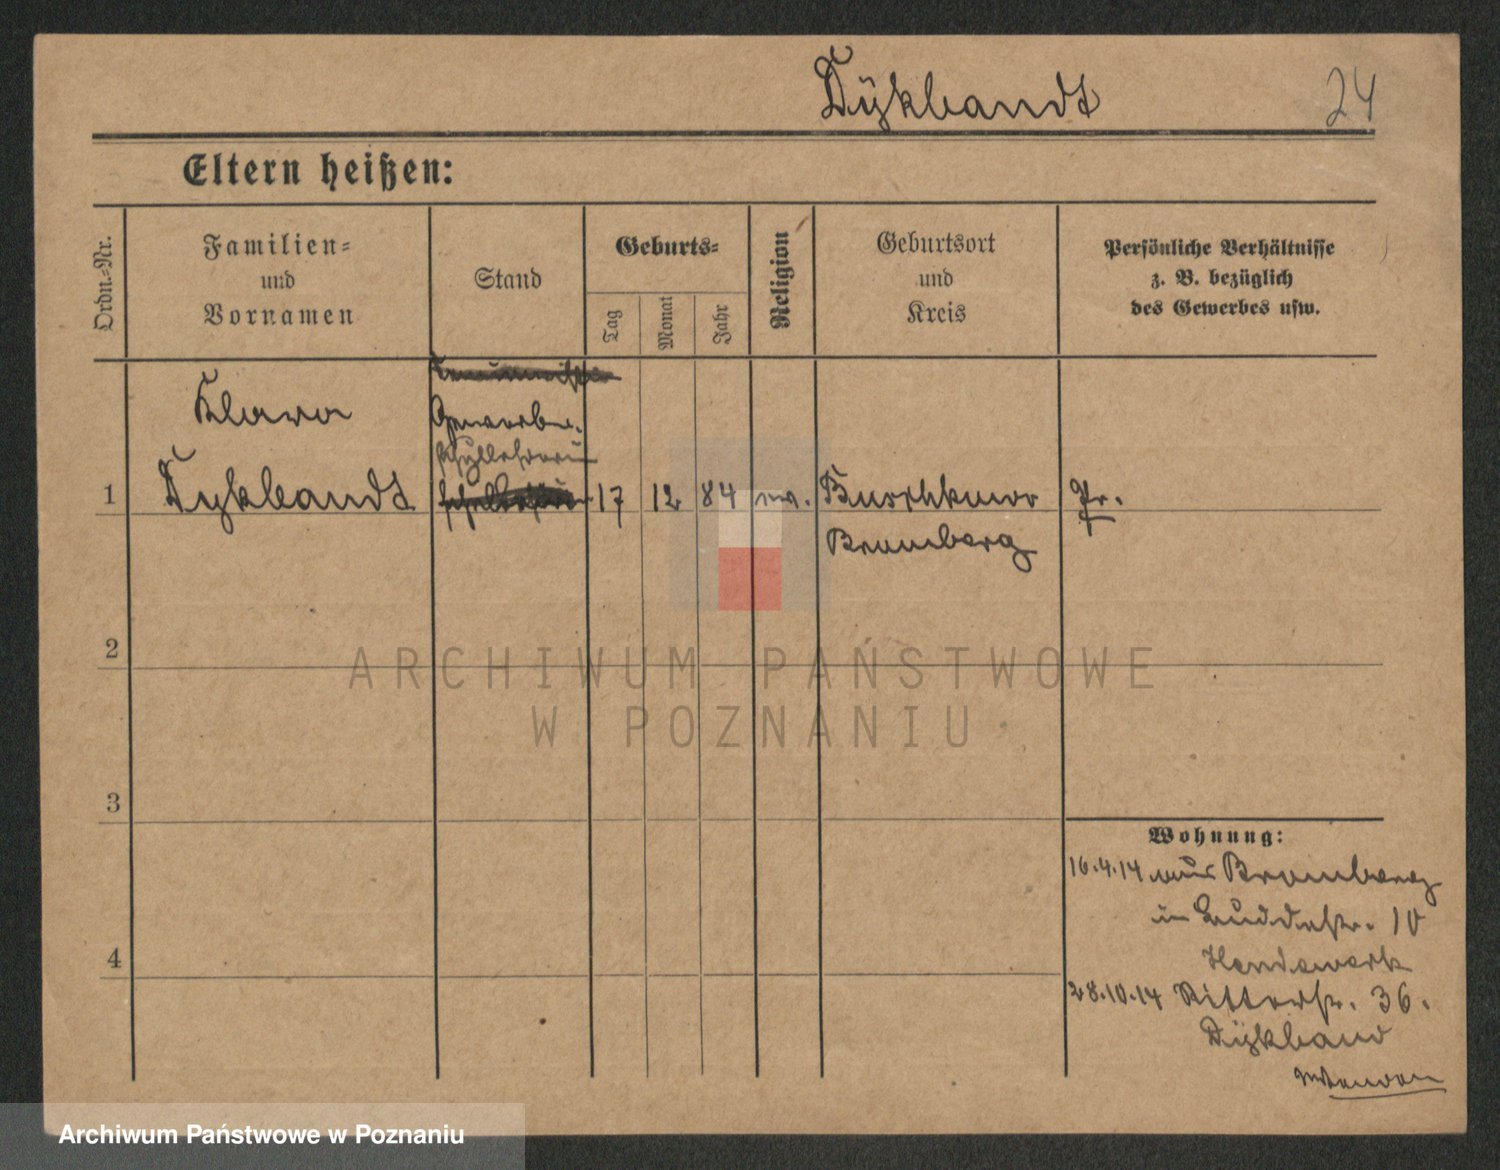 Dÿkbandt 24
Eltern heißen:
Ordn.-Nr.
Familien-
und
Vornamen
Stand
Geburts-
Tag
Monat
Jahr
Religion
Geburtsort
und
Kreis
Persönliche Verhältnisse
z. B. bezüglich
des Gewerbes usw.
Klara
Gewerbe-
schullehrerin
1 Dykbandt 17 12 84 ev. Buschkowo Pr.
Bromberg
2
3
4
Wohnung:
16.4.14 aus Bromberg
in Buddestr. 10
28.10.14 Ritterstr. 36.
Dÿkband
ARCHIWUM PAŃSTWOWE
W POZNANIU
Archiwum Państwowe w Poznaniu